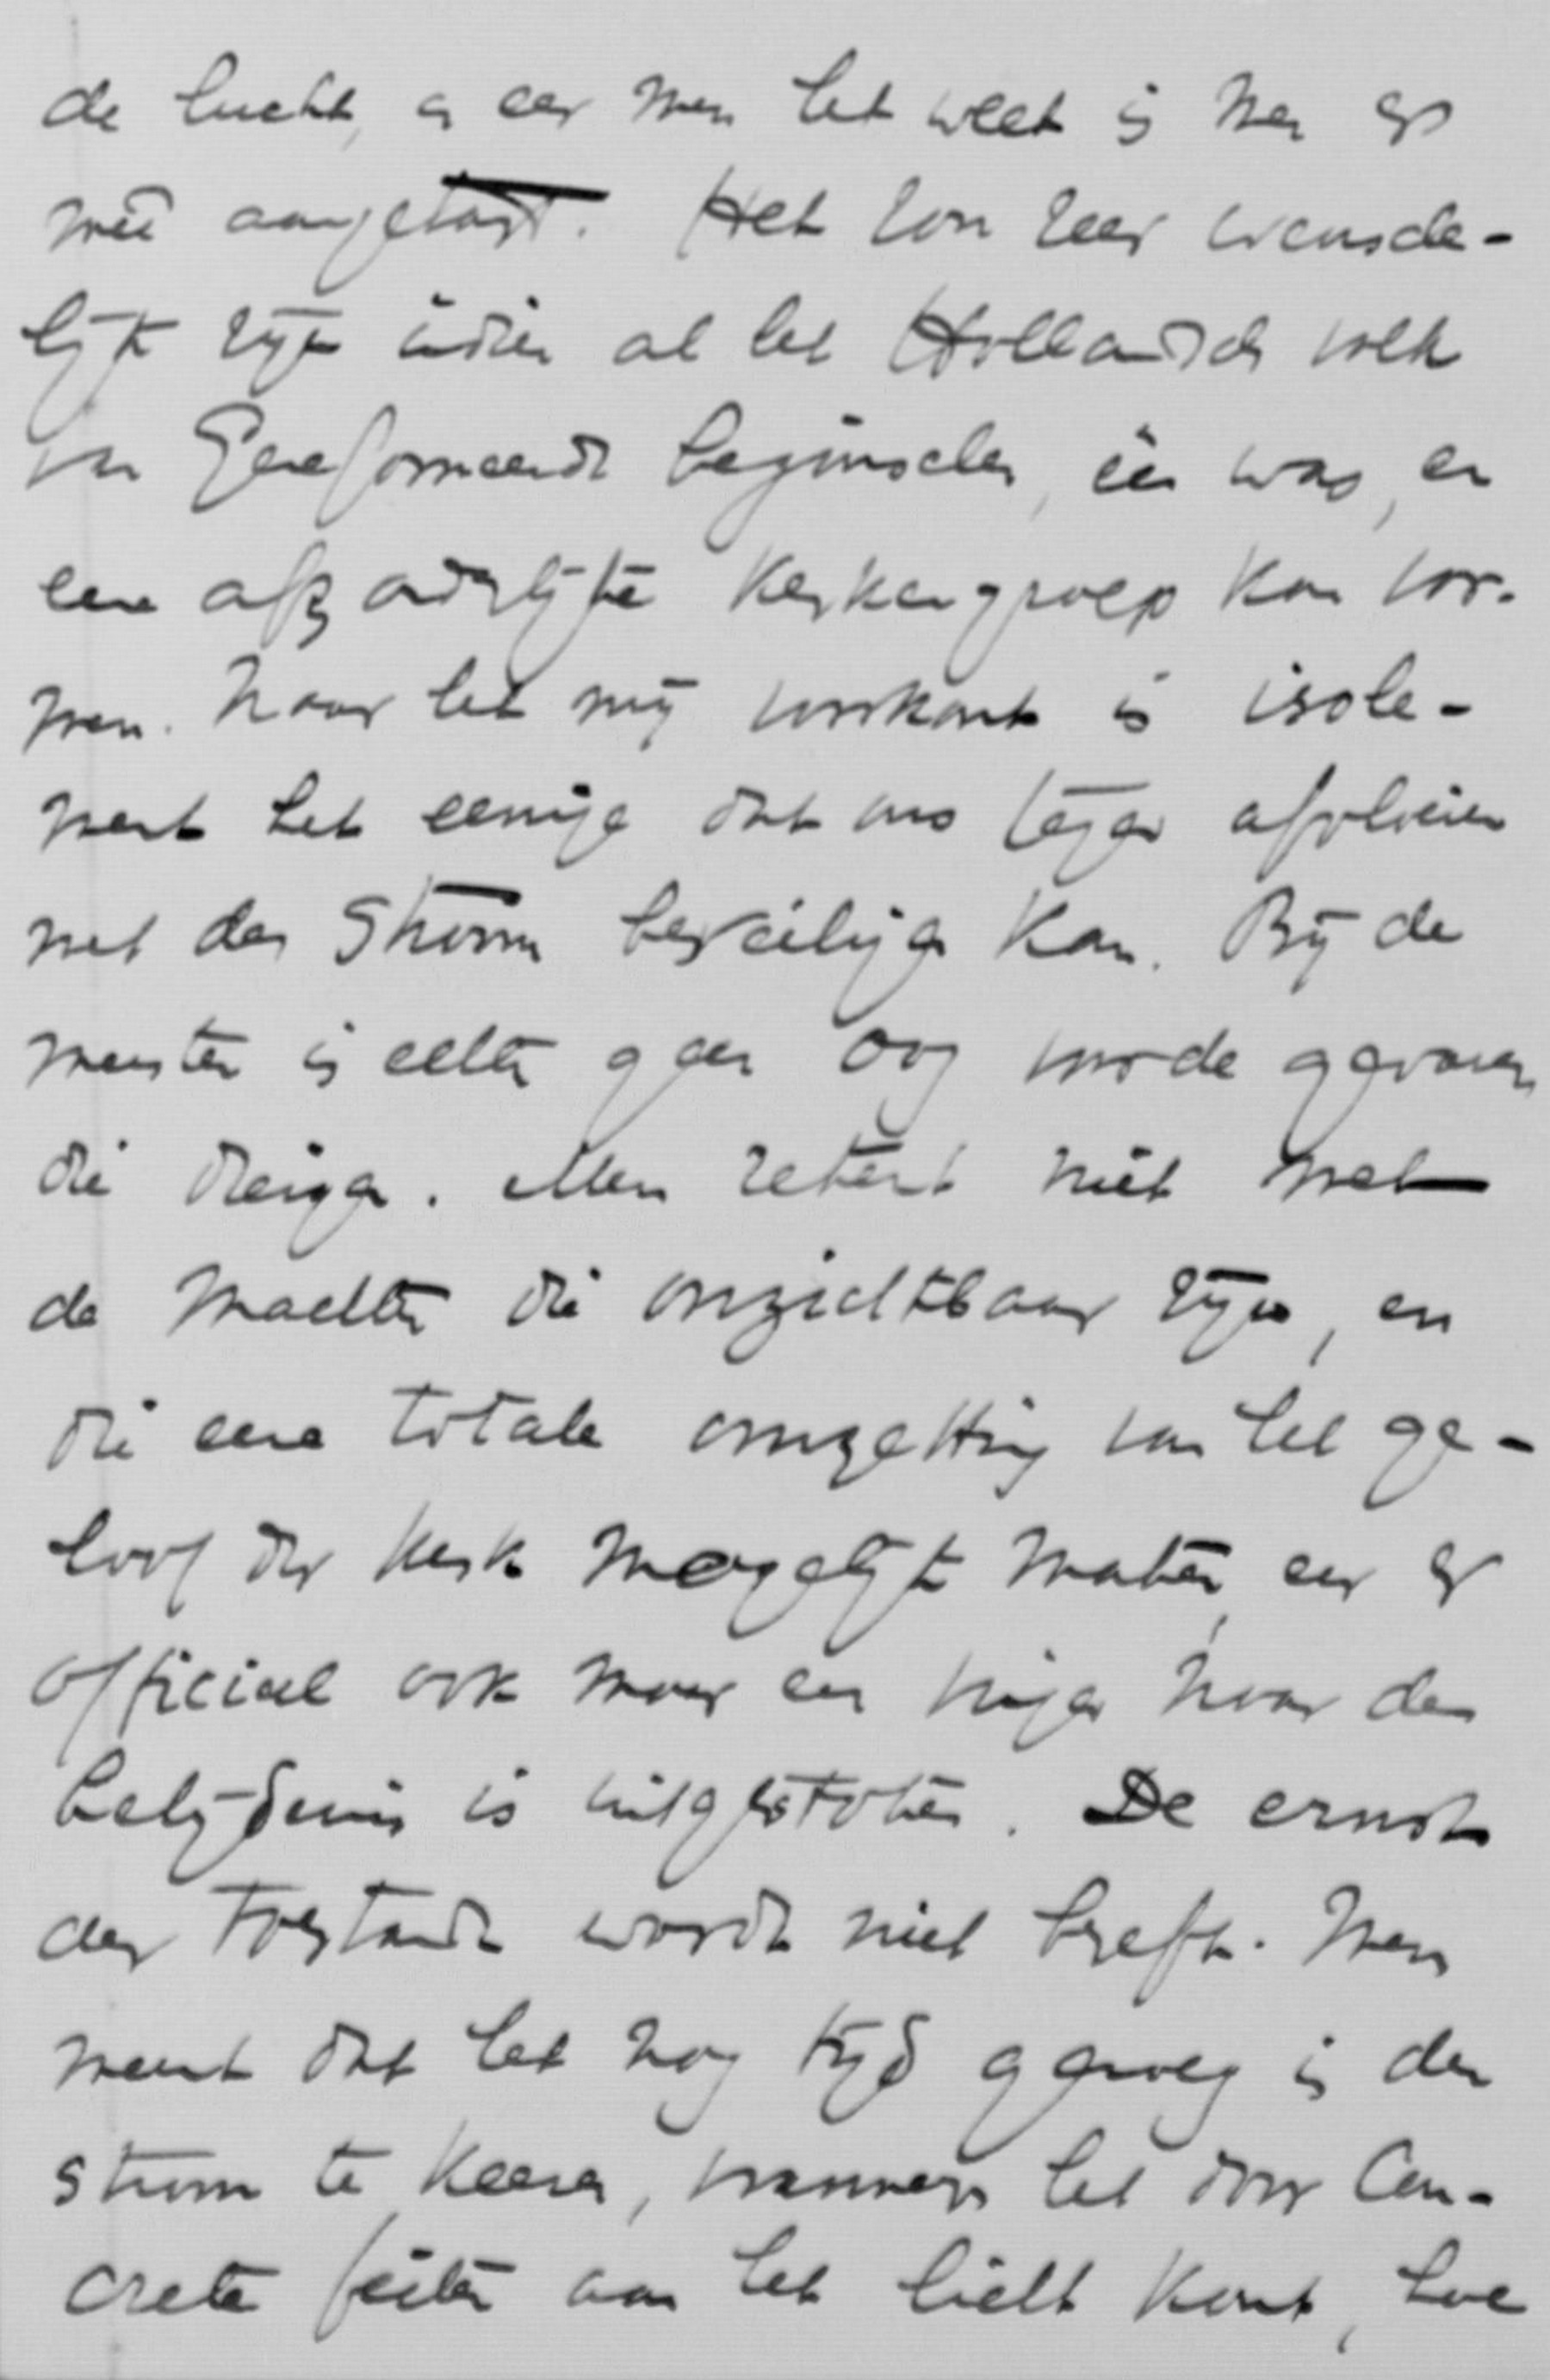 de lucht, en eer men het weet is men er
meê aangetast. Het zou zeer wensche-
lijk zijn indien al het Hollandsch volk
van Gereformeerde beginselen, één was, en
eene afzonderlijke kerkengroep kon vor-
men. Naar het mij voorkomt is isole-
ment het eenige dat ons tegen afvloeien
met den stroom beveiligen kan. Bij de
meesten is echter geen oog voor de gevaren
die dreigen. Men rekent niet met
de machten die onzichtbaar zijn, en
die eene totale omzetting van het ge-
loof der kerk mogelijk maken, eer er
officieel ook maar een vinger naar de
belijdenis is uitgestoken. De ernst
der toestand wordt niet beseft. Men
meent dat het nog tijd genoeg is den
stroom te keeren, wanneer het door con-
crete feiten aan het licht komt, hoe